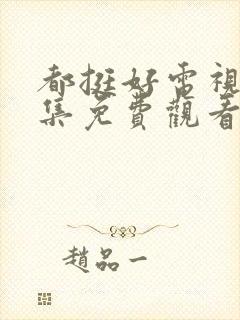 都挺好電視
集免費觀看
趙品一